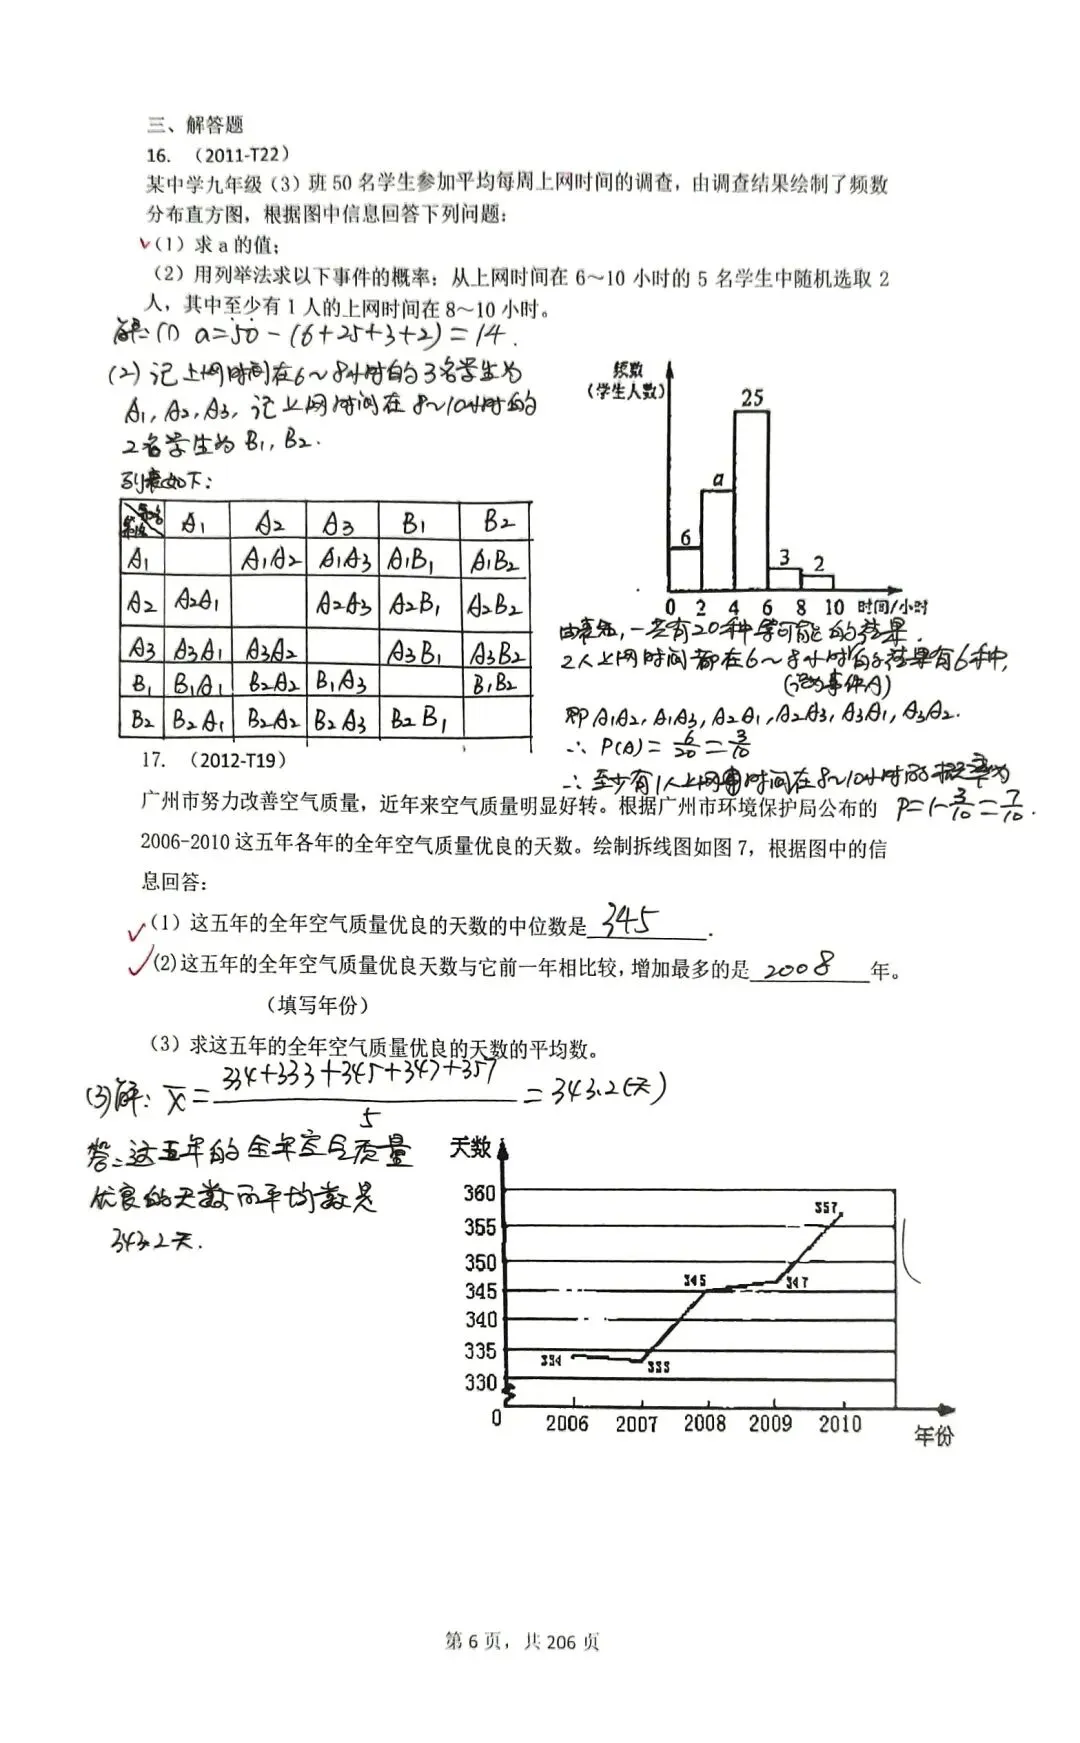 三、解答题
16. （2011-T22）
某中学九年级（3）班50名学生参加平均每周上网时间的调查，由调查结果绘制了频数
分布直方图，根据图中信息回答下列问题：
（1）求a的值；
（2）用列举法求以下事件的概率：从上网时间在6～10小时的5名学生中随机选取2
人，其中至少有1人的上网时间在8～10小时。
解：(1) a=50-(6+25+3+2)=14.
(2) 记上网时间在6～8小时的3名学生为
A1, A2, A3, 记上网时间在8～10小时的
2名学生为B1, B2.
列表如下：
A1 A2 A3 B1 B2
A1 A1A2 A1A3 A1B1 A1B2
A2 A2A1 A2A3 A2B1 A2B2
A3 A3A1 A3A2 A3B1 A3B2
B1 B1A1 B2A2 B1A3 B1B2
B2 B2A1 B2A2 B2A3 B2B1
频数
(学生人数)
25
a
6
3
2
0 2 4 6 8 10 时间/小时
由表知，一共有20种等可能的结果.
2人上网时间都在6～8小时的结果有6种,
(记为事件A)
即A1A2, A1A3, A2A1, A2A3, A3A1, A3A2.
∴ P(A)=6/20=3/10
∴至少有1人上网时间在8～10小时的概率为
P=1-3/10=7/10.
17. （2012-T19）
广州市努力改善空气质量，近年来空气质量明显好转。根据广州市环境保护局公布的
2006-2010这五年各年的全年空气质量优良的天数。绘制拆线图如图7，根据图中的信
息回答：
（1）这五年的全年空气质量优良的天数的中位数是 345 .
(2)这五年的全年空气质量优良天数与它前一年相比较，增加最多的是 2008 年。
（填写年份）
（3）求这五年的全年空气质量优良的天数的平均数。
(3)解：x̄=(334+333+345+347+357)/5=343.2(天)
答：这五年的全年空气质量
优良的天数的平均数是
343.2天.
天数
360
355
350
345
340
335
330
0
334
333
345
347
357
2006 2007 2008 2009 2010
年份
第6页，共206页